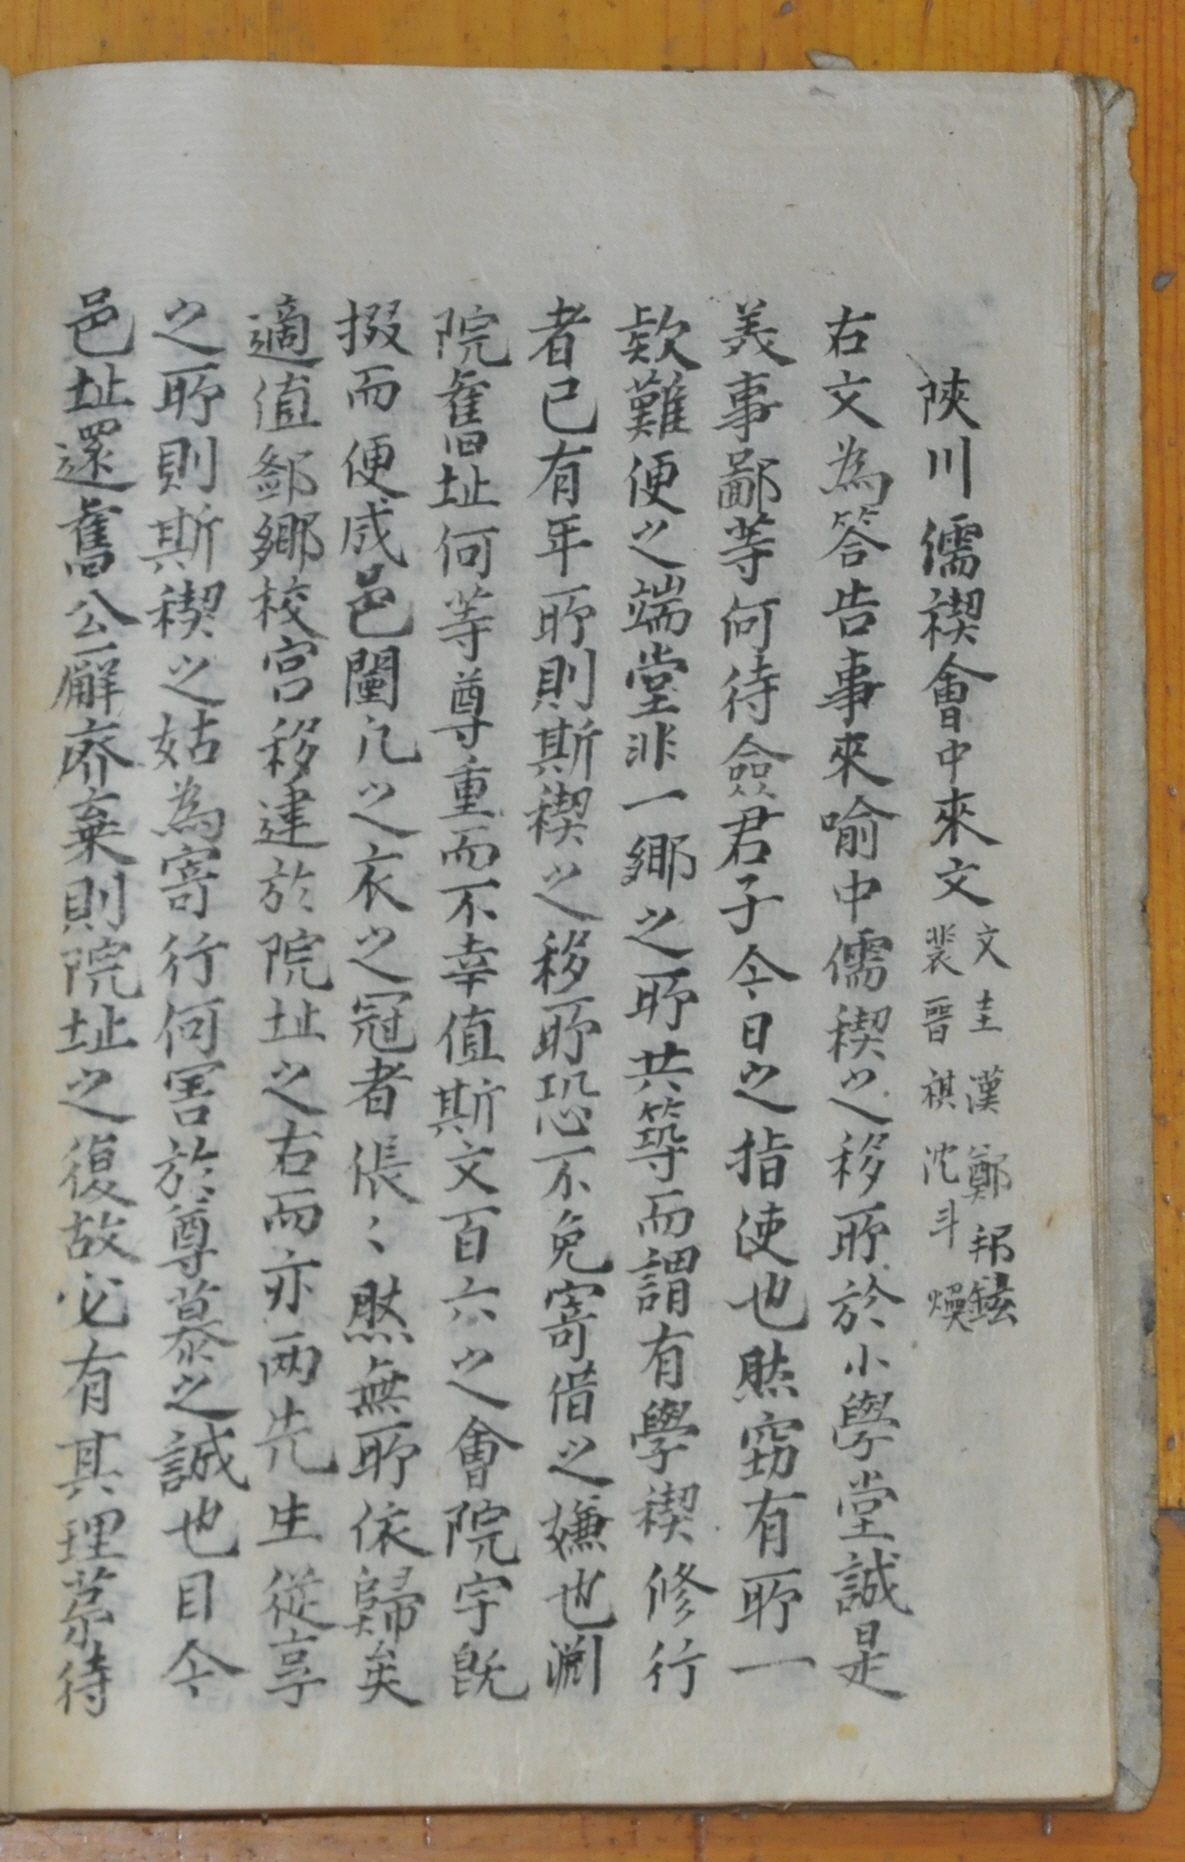 陜川儒禊會中來文 文圭漢 鄭邦鉉 裴晉祺 沈斗煥
右文為答告事來喻中儒稧之移所於小學堂誠是
美事鄙等何待僉君子今日之指使也然窃有所一
款難便之端堂非一鄉之所共等而謂有學禊修行
者已有年所則斯稧之移所恐不免寄借之嫌也淵
院舊址何等尊重而不幸值斯文百六之會院宇旣
掇而便成邑闉凡之衣之冠者倀〻然無所依歸矣
適值鄉校宮移建於院址之右而亦兩先生從享
之所則斯稧之姑為寄行何害於尊慕之誠也目今
邑址還舊公廨齊棄則院址之復故必有其理茅待